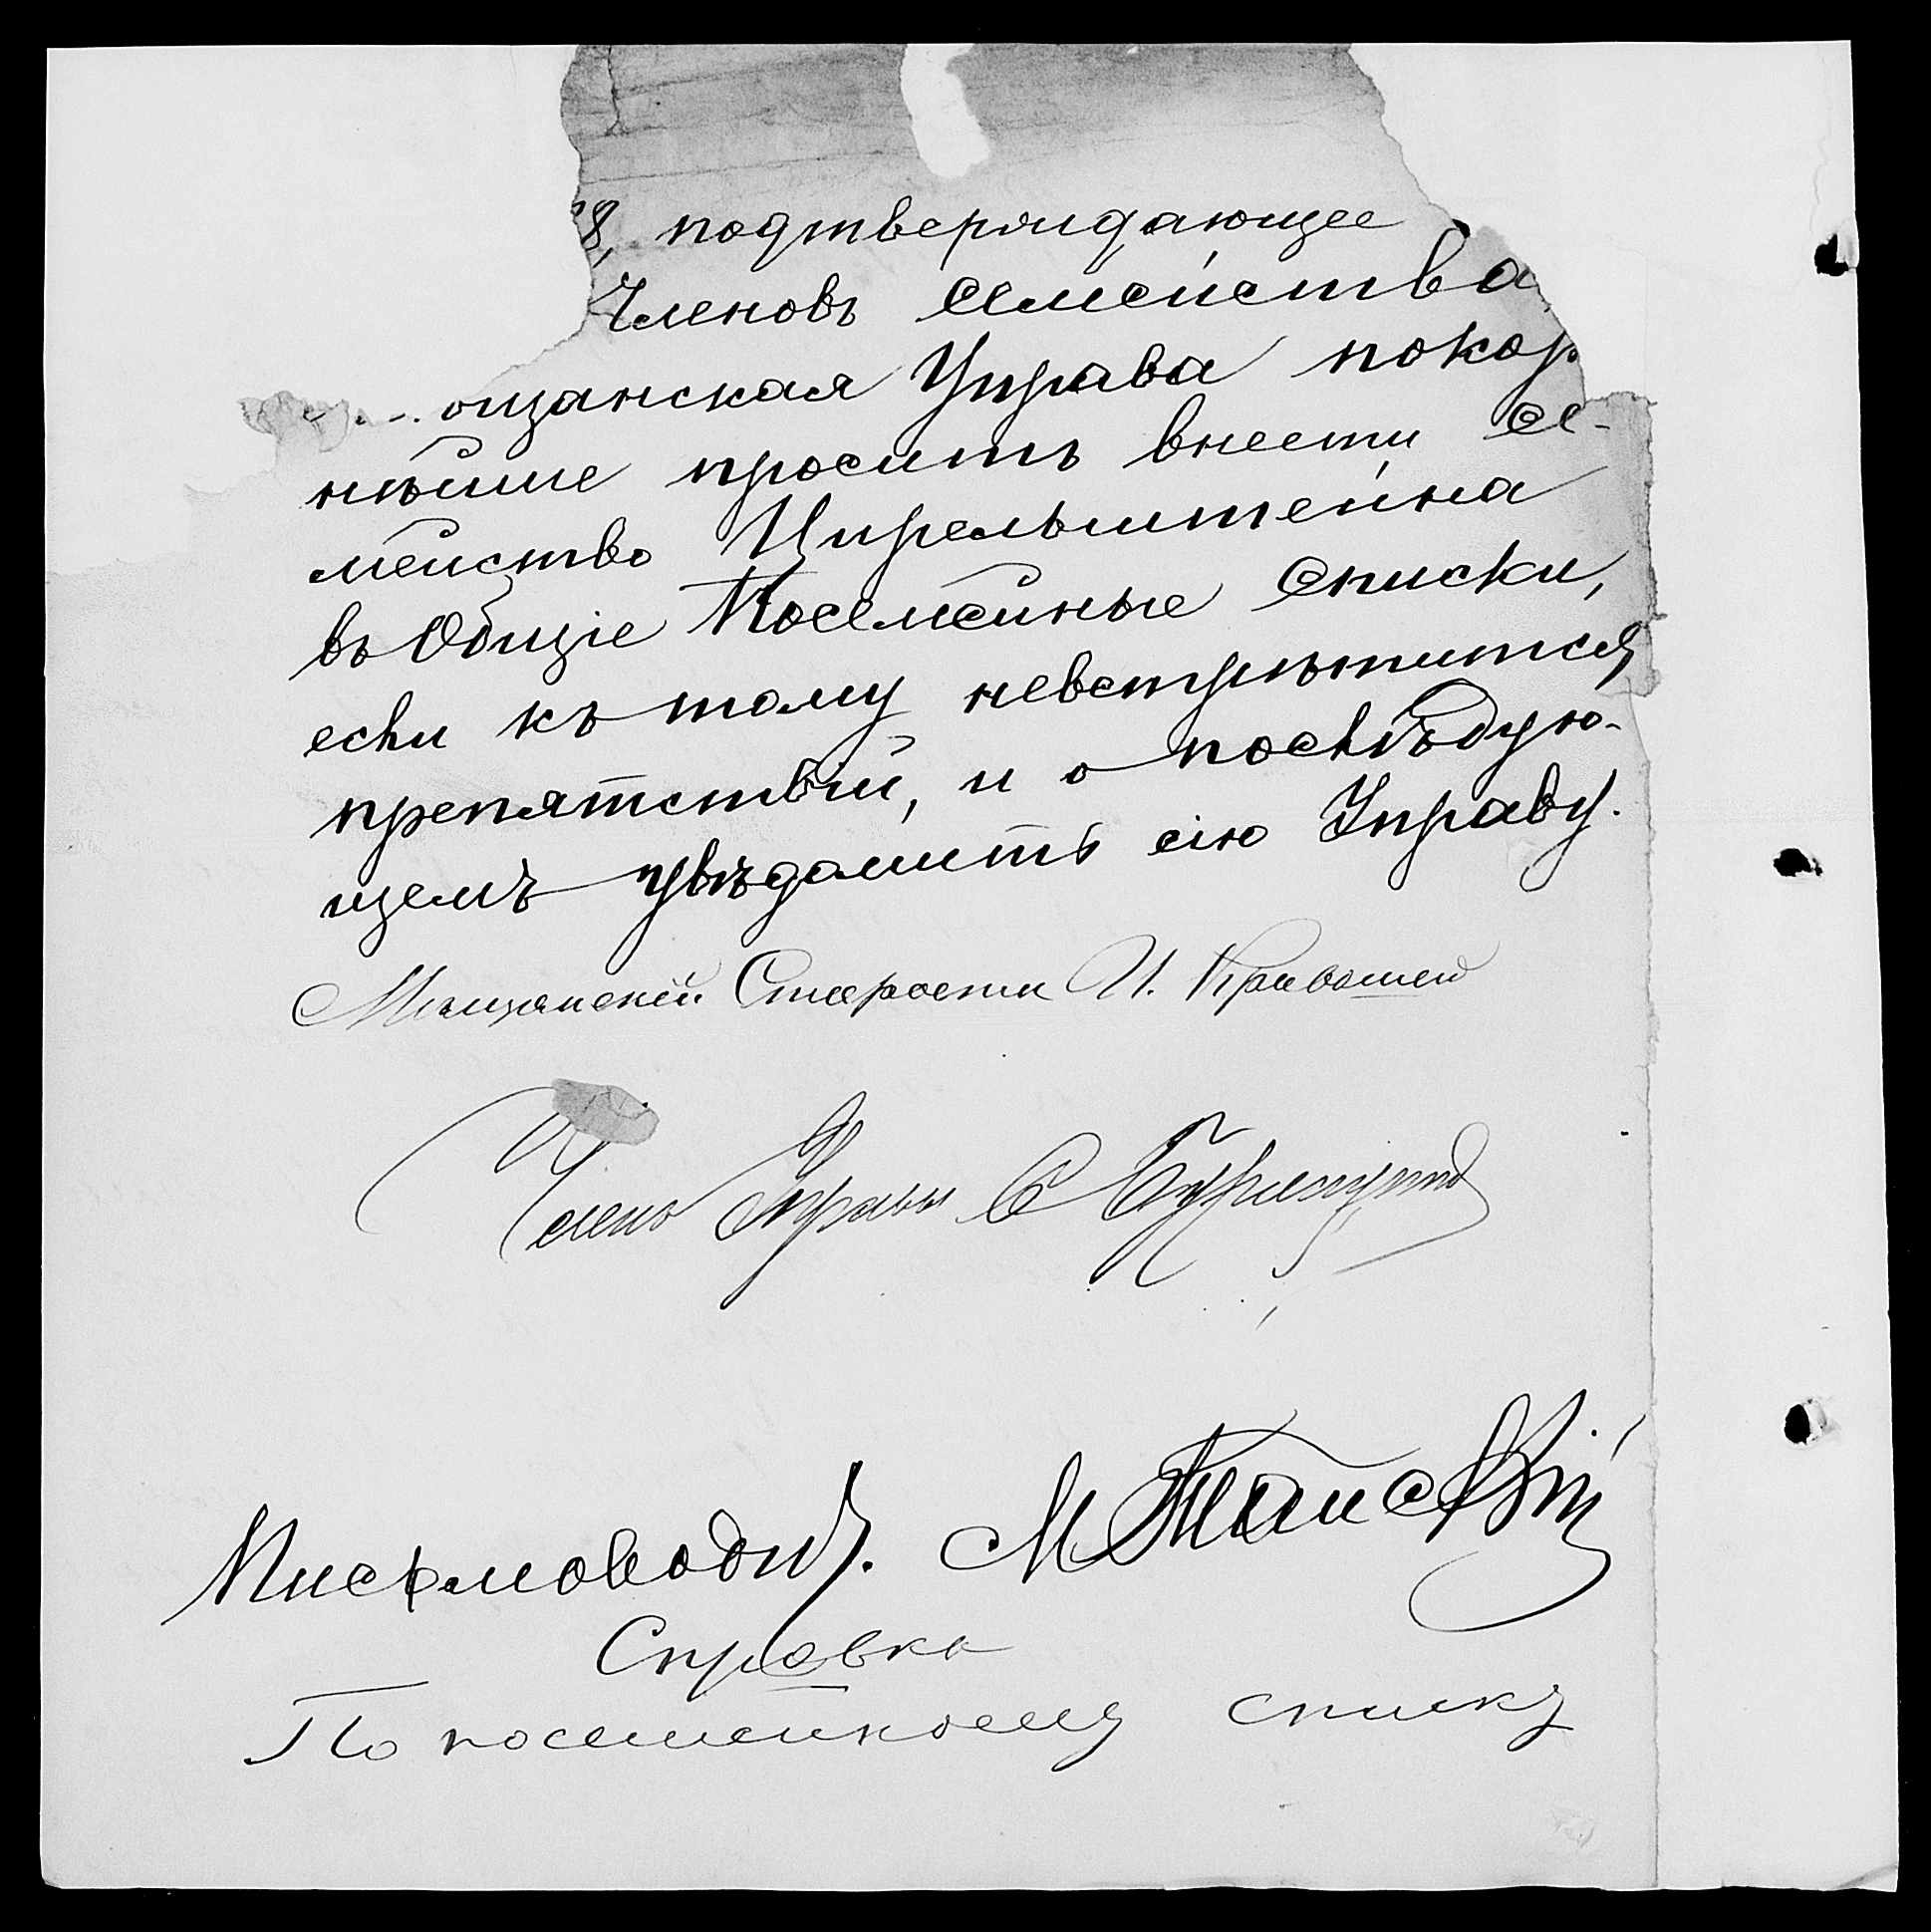 8, подтверждающее
Членовъ семейства
ощанская Управа покор
нѣйше проситъ внести се-
мейство Цирельштейна
въ Общіе Посемейные списки,
если къ тому невстрѣтится
препятствій, и о послѣдую-
щемъ увѣдомить сію Управу.
Мѣщанскій Староста И. Кривошей
Членъ Управы С
Письмоводит. М
Справка
По посемейному списку